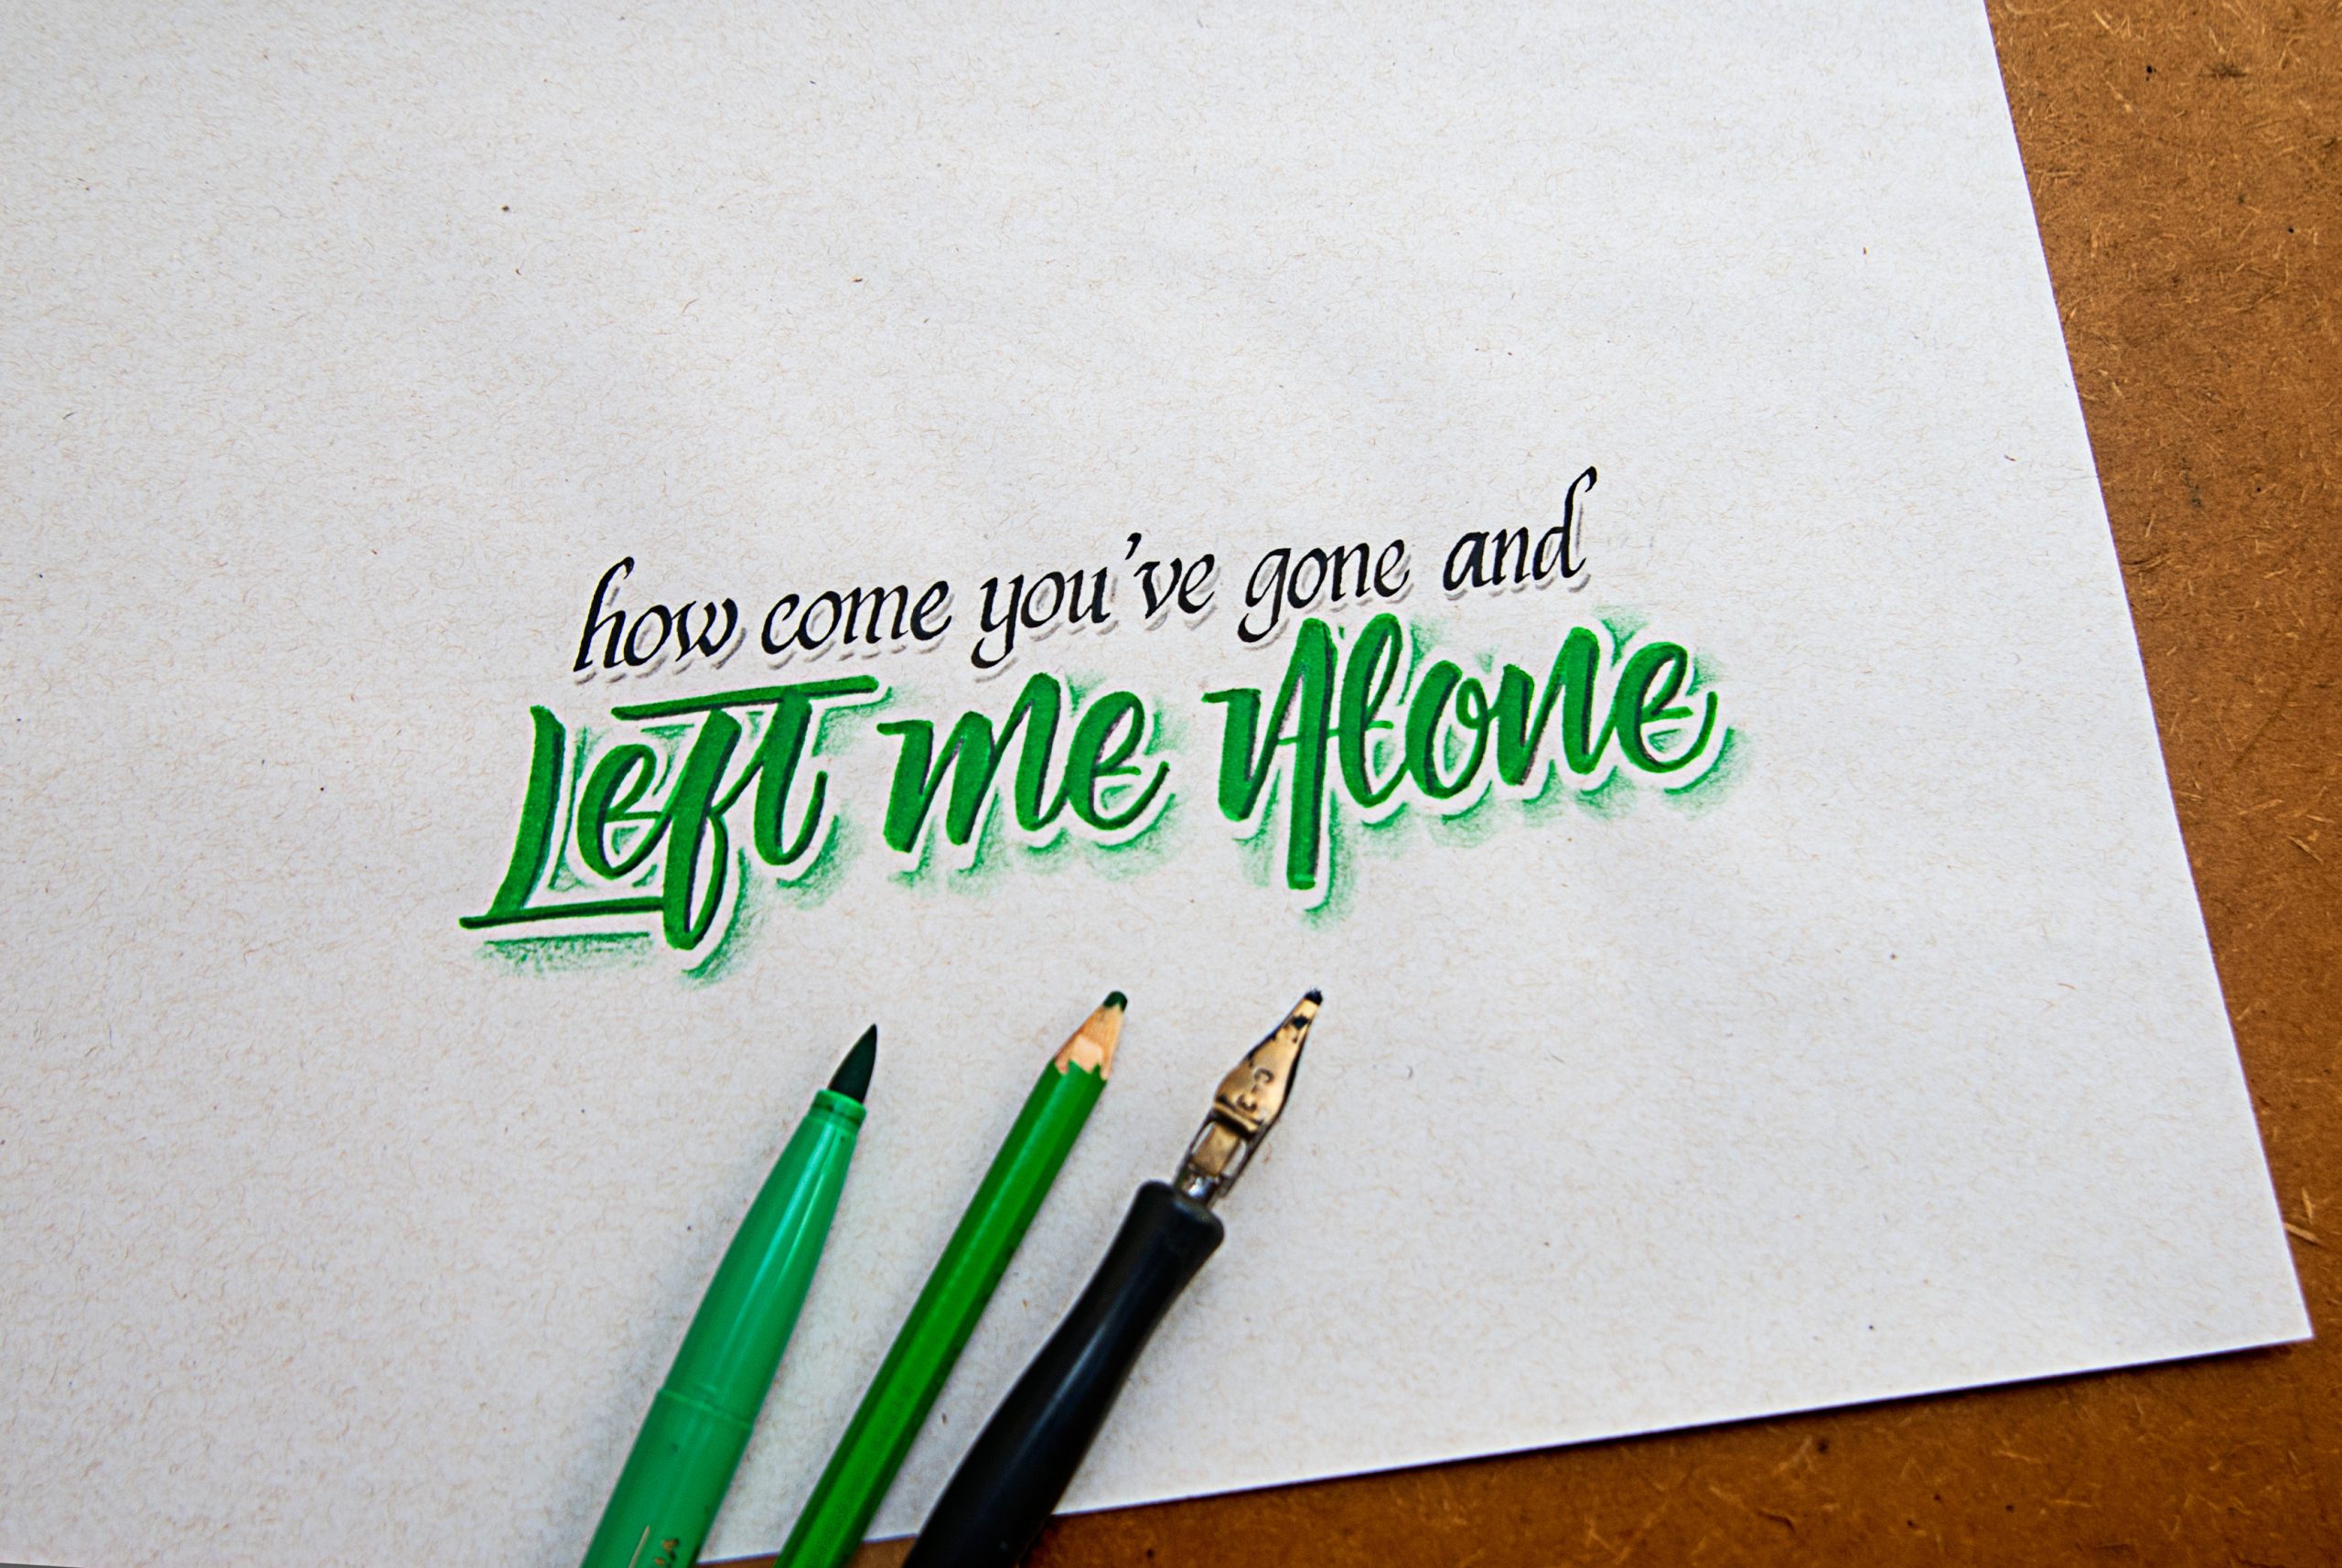 how come you've gone and
Left me Alone
C-3